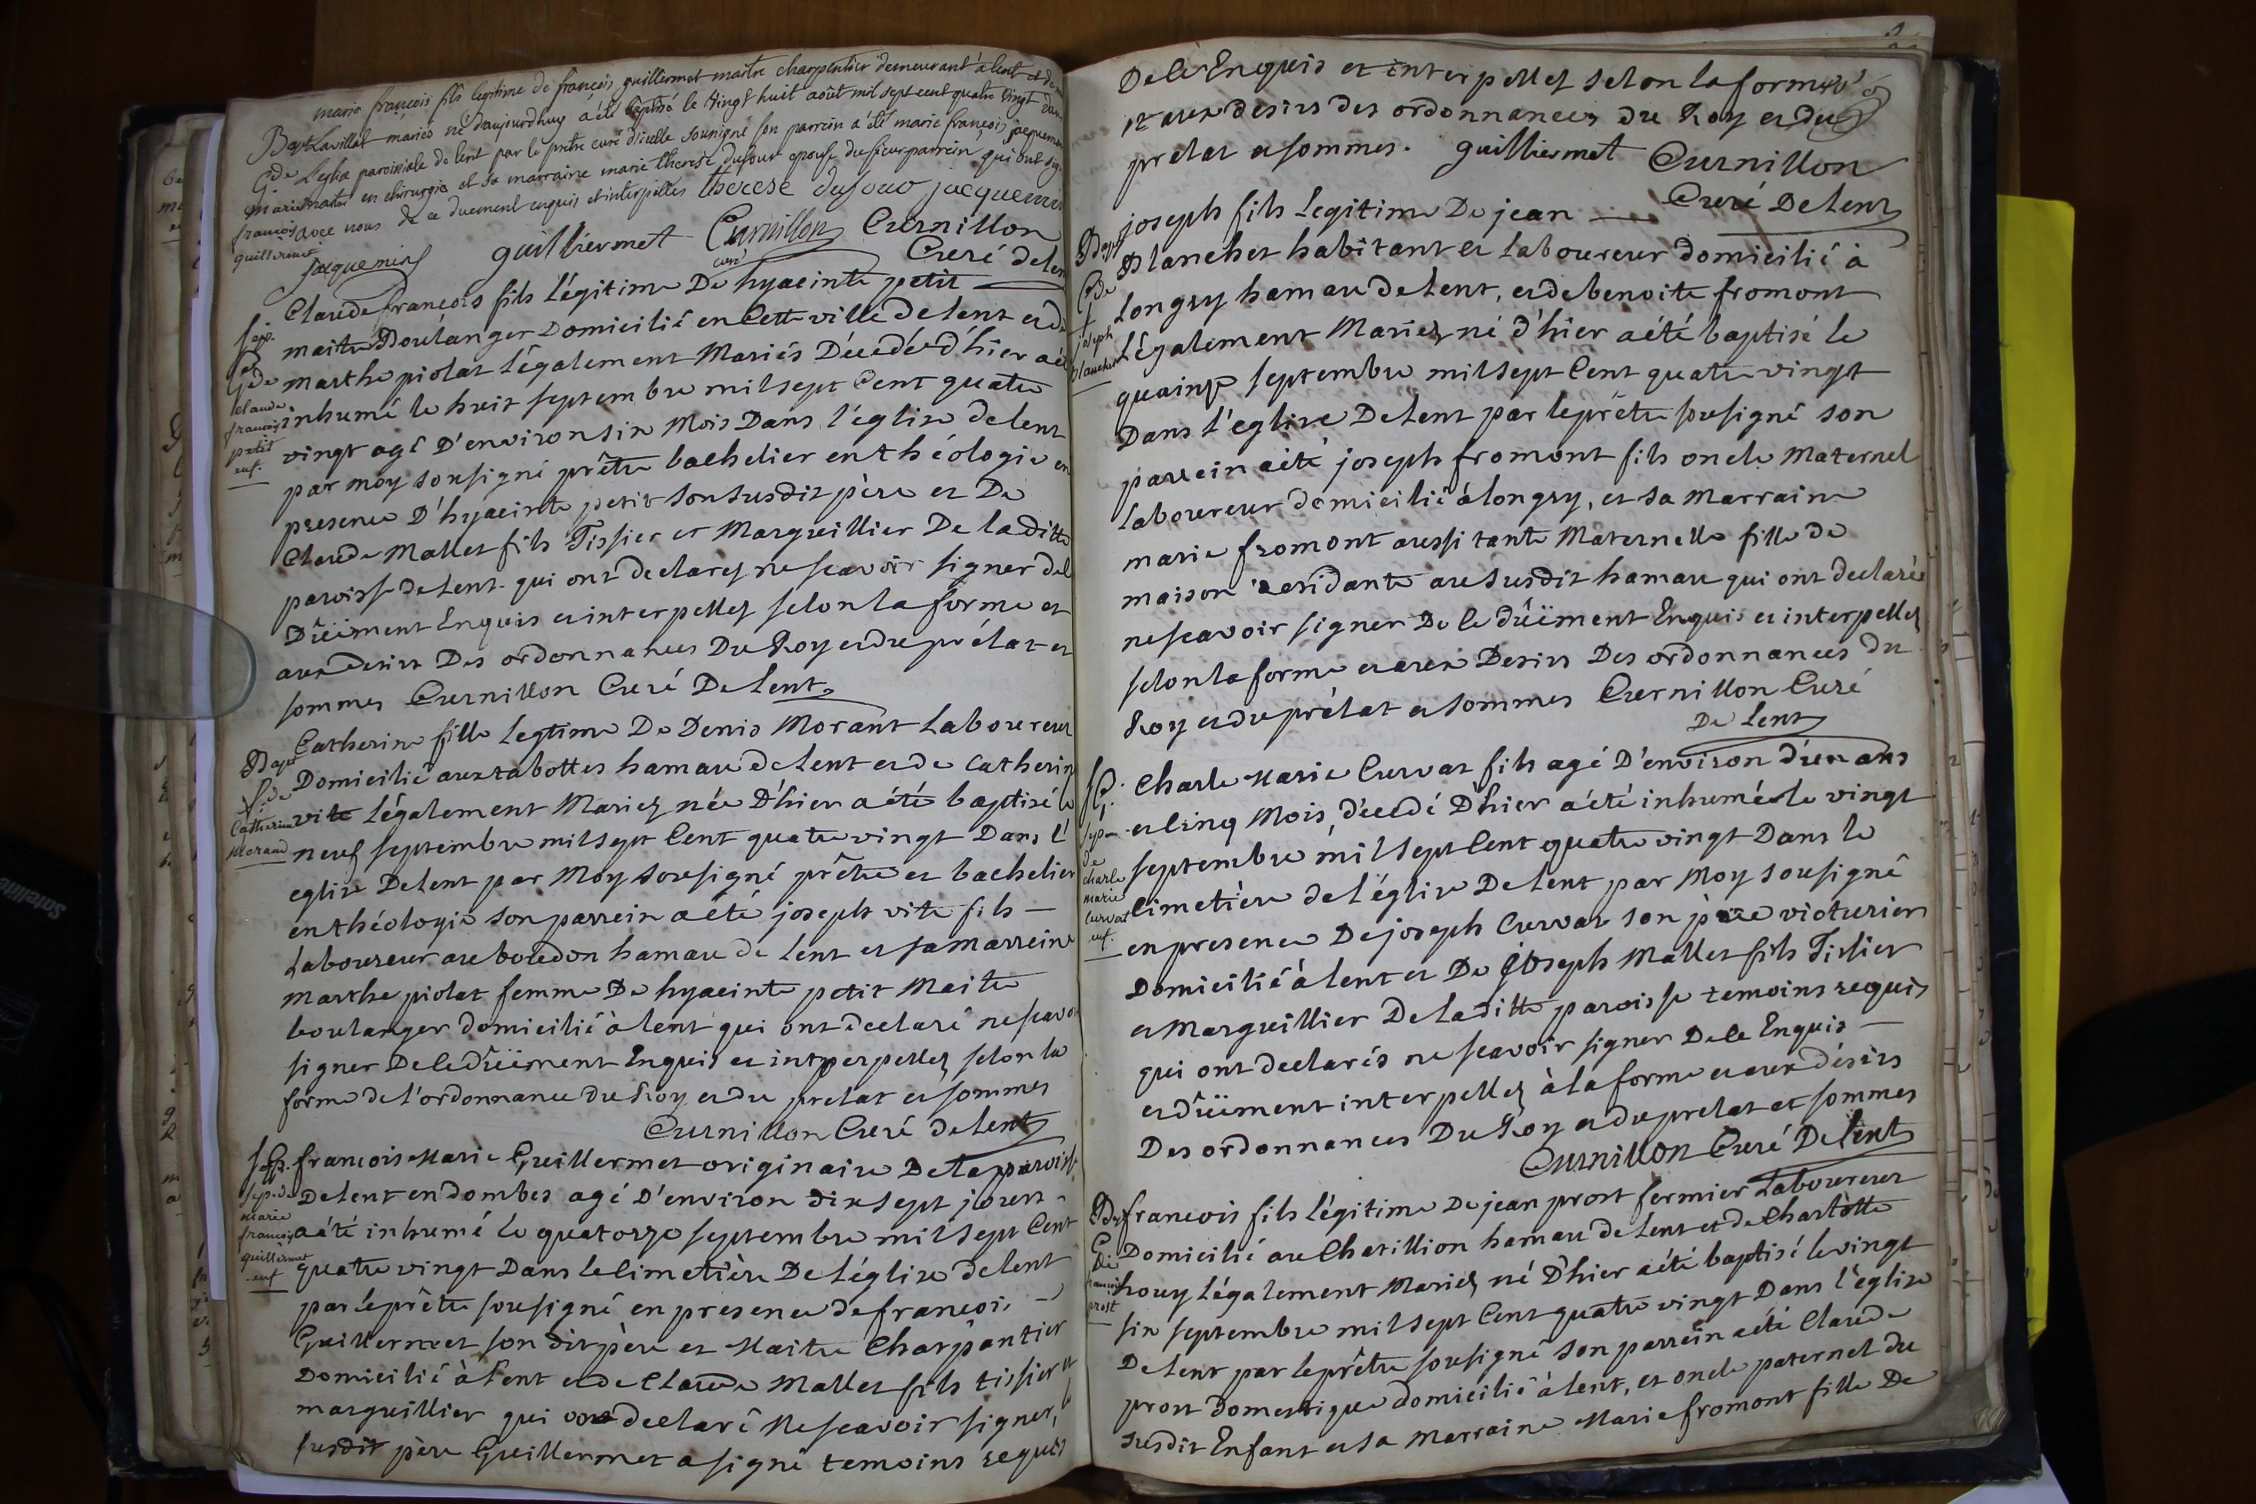 marie françois fils legitime de françois guillermet maitre charpentier demeurant à lent et de
Bapt. Lavillat mariés né d'aujourdhuy a été baptisé le vingt huit août mil sept cent quatre vingt dans
G. de L'eglise paroissiale de lent par le prêtre curé d'icelle sousigné son parrein a été marie françois jacquemin
marie maitre en chirurgie et sa marraine marie therese dufour epouse du sieur parrein qui ont signé
françois avec nous de ce duement enquis et interpellés therese dufour jacquemin
guillermet
jacquemin guilliermet Curnillon curé Curnillon
Curé de lent
Claude françois fils légitime De hyacinte petit
Sep. maitre Boulanger Domicilié en Cette ville de lent et de
G. de marthe piolat légalement Mariés Décédé d'hier a été
claude inhumé le huit septembre mil sept Cent quatre
françois vingt agé D'environ six Mois Dans l'église de lent
petit par moy sousigné prêtre bachelier en théologie en
enf. presence D'hyacinte petit son susdit père et De
Claude Mallet fils Tissier et Marguillier De la ditte
paroisse de lent qui ont declarez ne scavoir signer de ce
Düëment Enquis et interpellez selon la forme et
aux desirs Des ordonnances Du Roy et du prélat et
sommes Curnillon Curé De lent
Catherine fille legtime De Denis Morant Laboureur
Bapt Domicilié aux tabottes hamau de lent et de Catherine
f. de vite légalement Mariez née D'hier a été baptisé le
Catherine neuf septembre mil sept Cent quatre vingt Dans l'
Morand eglise De lent par Moy sousigné prêtre et bachelier
en théologie son parrein a été joseph vite fils
Laboureur au boudon hamau de lent et sa marreine
marthe piolat femme De hyacinte petit Maitre
boulanger domicilié à lent qui ont declaré ne scavoir
signer De ce düëment Enquis et interpellez selon la
forme de l'ordonnance du Roy et du prelat et sommes
Curnillon Curé de lent
Sep. francois Marie Guillermet originaire De la paroisse
sep. de De lent en dombes agé D'environ dix sept jours
marie a été inhumé le quatorze septembre mil sept Cent
françois quatre vingt Dans le Cimetière De l'église de lent
guillermet par le prêtre sousigné en presence de francois
enf Guillermet son dit père et Maitre Charpantier
Domicilié à lent et de Claude Mallet fils tissier et
marguillier qui ont declaré Ne scavoir signer, le
susdit père Guillermet a signé temoins requis
De ce Enquis et interpellez selon la forme
et aux desirs des ordonnances du Roy et du
prelat et sommes. guilliermet Curnillon
Curé De lent
joseph fils legitime De jean
Bapt Blanchet habitant et laboureur domicilié à
G. de longry hamau de lent, et de benoite fromont
joseph légalement Mariez né d'hier a été baptisé le
blanchet quainze septembre mil sept Cent quatre vingt
Dans l'église De lent par le prêtre sousigné son
parrein a été joseph fromont fils oncle Maternel
Laboureur domicilié à longry, et sa Marraine
marie fromont aussi tante Maternelle fille de
maison residante au susdit hamau qui ont declaré
ne scavoir signer De ce düëment Enquis et interpellez
selon la forme et aux Desirs Des ordonnances du
Roy et du prélat et sommes Curnillon Curé
De lent
Charle Marie Curvat fils agé D'environ d'un ans
G. et Cinq Mois, décédé D'hier a été inhumé le vingt
sep. septembre mil sept Cent quatre vingt Dans le
de Cimetière de l'église De lent par Moy sousigné
charle en presence De joseph Curvat son père voiturier
marie Domicilié à lent et De joseph Mallet fils Tissier
curvat et Marguillier De la ditte paroisse temoins requis
enf. qui ont declarés ne scavoir signer De ce Enquis
et düëment interpellez à la forme et aux désirs
Des ordonnances Du Roy et du prelat et sommes
Curnillon Curé De lent
Bap. francois fils légitime De jean prost fermier Laboureur
G. Domicilié au Chatillion hamau de lent et de Charlotte
de rouy légalement Mariez né D'hier a été baptisé le vingt
francois six septembre mil sept Cent quatre vingt Dans l'église
prost De lent par le prêtre sousigné son parrein a été Claude
prost domestique domicilié à lent, et oncle paternel du
susdit Enfant et sa marraine Marie fromont fille De